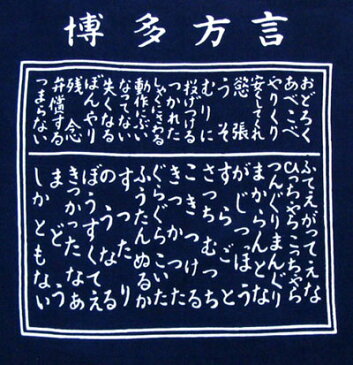 博多方言
おどろく
あべこべ
やりくり
安してくれ
慾張
うそ
むりに
投げつける
つかれた
しゃくにさわる
動作にぶい
なってない
失くなる
ぼんやり
残念
弁償する
つまらない
ふてえがってえな
ひっちゃらこっちゃら
つんぐりまんぐり
まからんとな
がじっぽう
すらごと
さっちむっち
こきつける
きつかった
ぐらぐらこいた
ふうたんぬるか
すったり
のうなる
ぼうすくてえる
きつかったなあ
まどう
しかともない